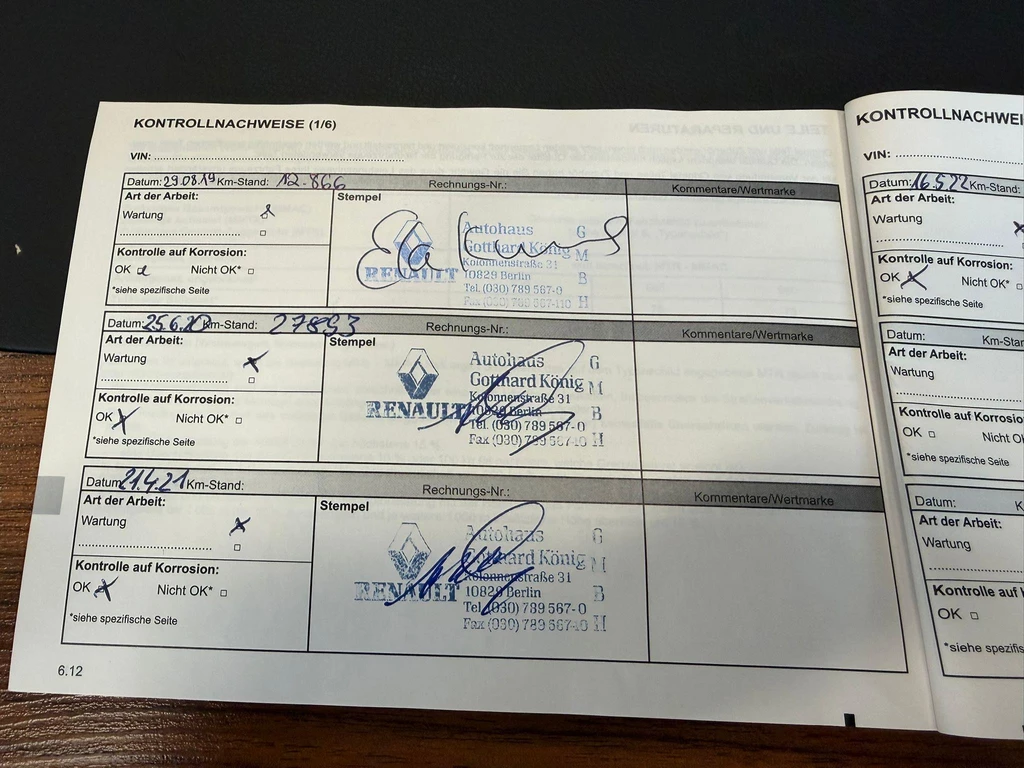 KONTROLLNACHWEISE (1/6)
VIN:
Datum: 29.08.19 Km-Stand: 12.866 Rechnungs-Nr.: Kommentare/Wertmarke
Art der Arbeit: Stempel
Wartung
Kontrolle auf Korrosion:
OK Nicht OK*
*siehe spezifische Seite
RENAULT
Autohaus G
Gotthard König M
Kolonnenstraße 31
10829 Berlin B
Tel. (030) 789 567-0
Fax (030) 789 567-10 H
Datum: 25.6.20 Km-Stand: 27893 Rechnungs-Nr.: Kommentare/Wertmarke
Art der Arbeit: Stempel
Wartung
Kontrolle auf Korrosion:
OK Nicht OK*
*siehe spezifische Seite
RENAULT
Autohaus G
Gotthard König M
Kolonnenstraße 31
10829 Berlin B
Tel. (030) 789 567-0
Fax (030) 789 567-10 H
Datum: 21.4.21 Km-Stand: Rechnungs-Nr.: Kommentare/Wertmarke
Art der Arbeit: Stempel
Wartung
Kontrolle auf Korrosion:
OK Nicht OK*
*siehe spezifische Seite
RENAULT
Autohaus G
Gotthard König M
Kolonnenstraße 31
10829 Berlin B
Tel. (030) 789 567-0
Fax (030) 789 567-10 H
6.12
KONTROLLNACHWEI
VIN:
Datum: 16.5.22 Km-Stand:
Art der Arbeit:
Wartung
Kontrolle auf Korrosion:
OK Nicht OK*
*siehe spezifische Seite
Datum: Km-Star
Art der Arbeit:
Wartung
Kontrolle auf Korrosio
OK Nicht Ol
*siehe spezifische Seite
Datum: K
Art der Arbeit:
Wartung
Kontrolle auf
OK
*siehe spezifisch